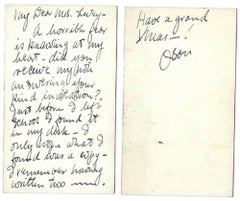 My Dear Mrs. Luxy-
A horrible fear
is knawing at my
heart - did you
receive my note
answering your
kind invitation?
Just before I left
school I found it
in my desk - I
only hope what I
found was a copy -
I remember having
written two —.
Have a grand
Xmas -!